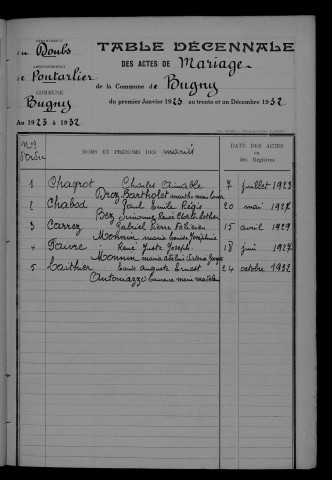 DÉPARTEMENT
du Doubs
ARRONDISSEMENT
de Pontarlier
COMMUNE
Bugny
An 1923 à 1932
TABLE DÉCENNALE
DES ACTES de Mariage
de la Commune de Bugny
du premier Janvier 1923 au trente et un Décembre 1932
Nos d'Ordre
NOMS ET PRÉNOMS DES mariés
DATE DES ACTES
ou
des Registres
1 Chagrot Charles Aimable 7 juillet 1923
Droz Bartholet marthe
2 Chabod Paul Emile Régis 20 mai 1927
Bez René
3 Carrez Gabriel Pierre Félicien 15 avril 1929
Monnin marie Louise Joséphine
4 Faivre René Juste Joseph 18 juin 1927
Monnin marie
5 Laithier Louis Auguste Ernest 24 octobre 1932
Antoniazzo